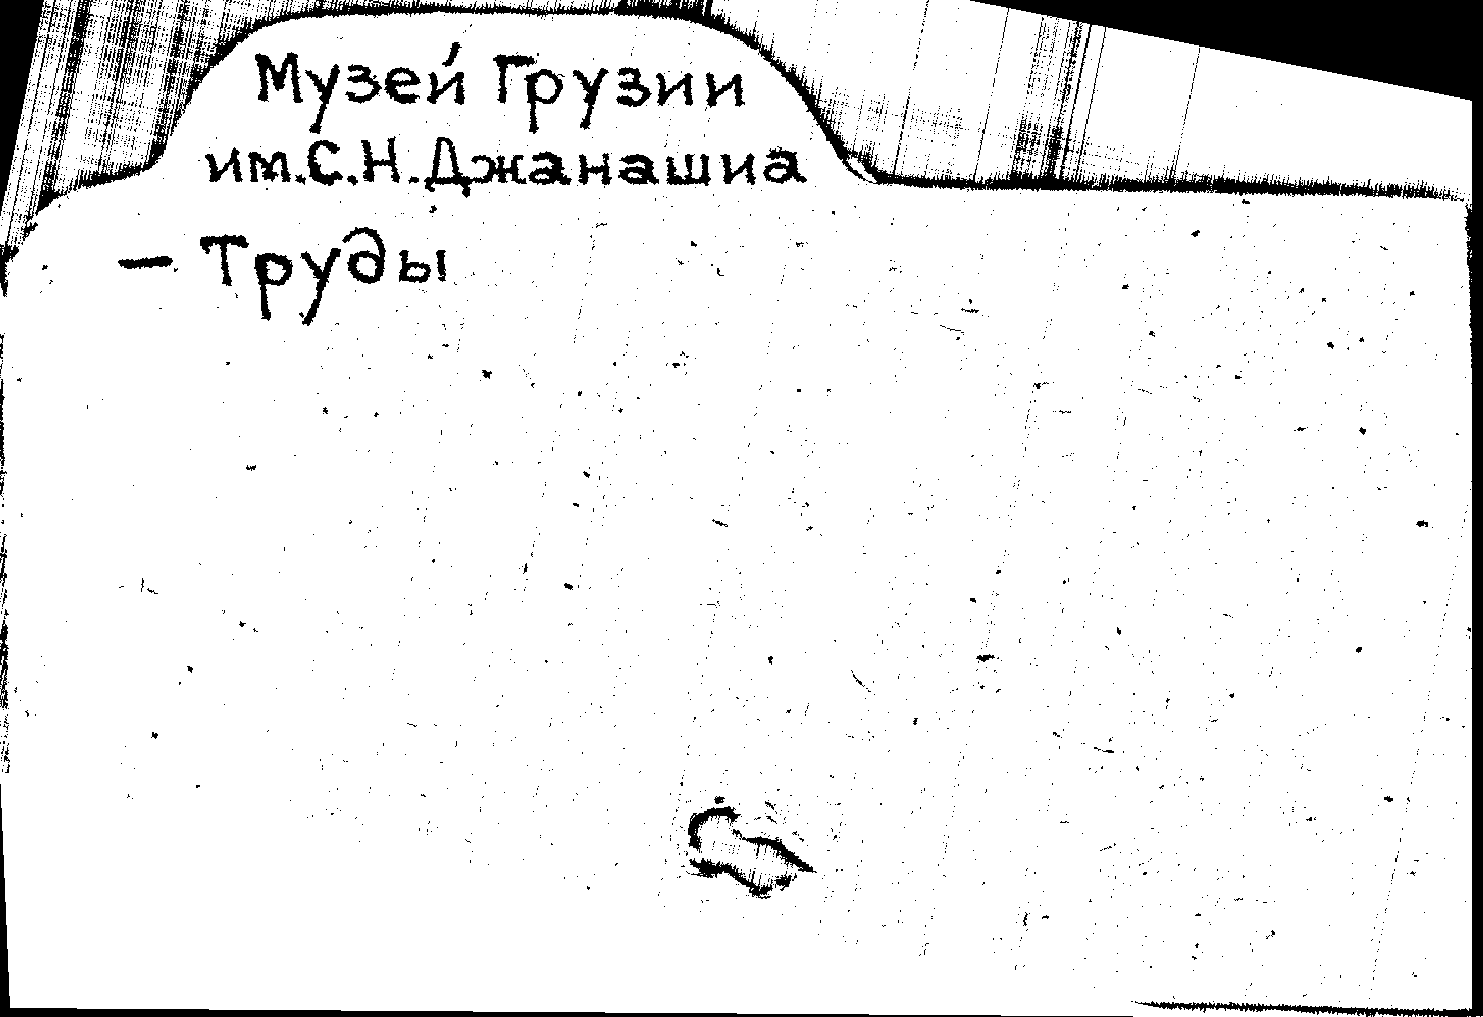 Музей Грузии
им.С.Н.Джанашиа
— Труды